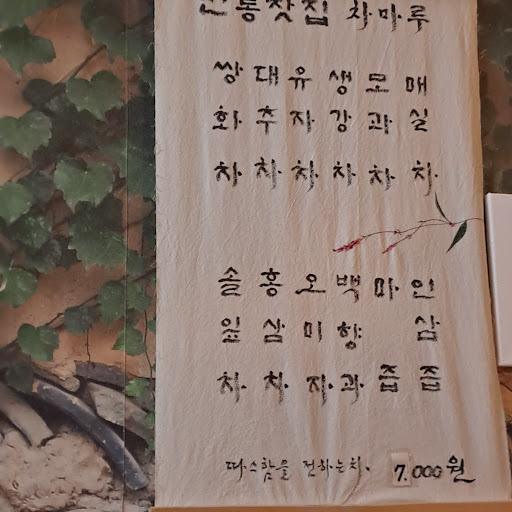 전통찻집 차마루
쌍화차
대추차
유자차
생강차
모과차
매실차
솔잎차
홍삼차
오미자
백향과
마즙
인삼즙
따스함을 전하는차. 7.000원